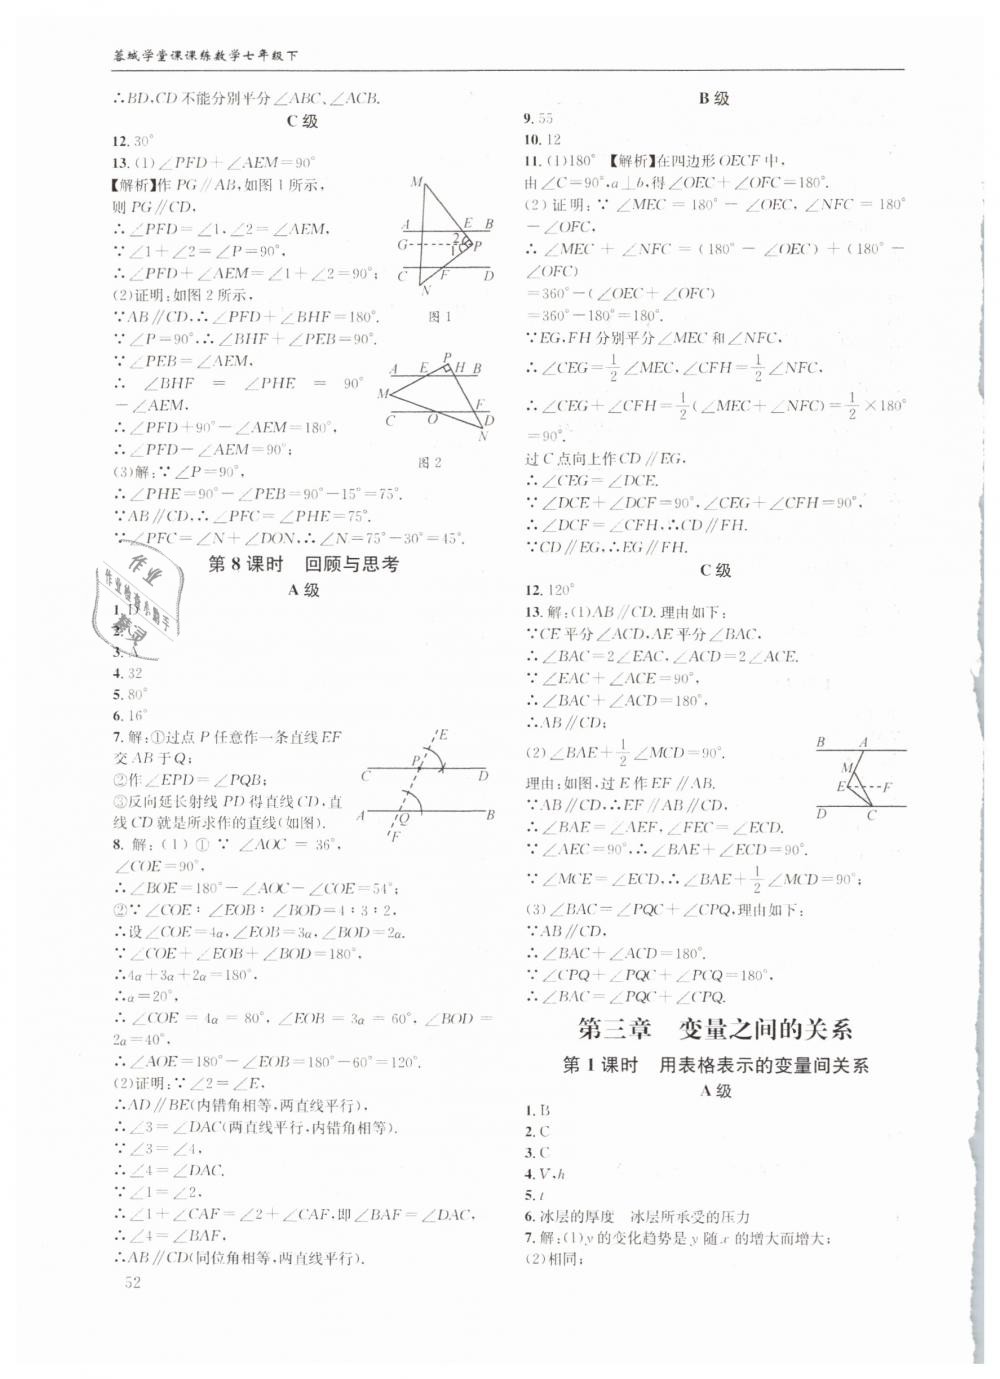 蓉城学堂课课练数学七年级下
∴BD,CD不能分别平分∠ABC、∠ACB.
C级
12. 30°
13. (1)∠PFD+∠AEM=90°
【解析】作PG∥AB,如图1所示,
则PG∥CD,
∴∠PFD=∠1,∠2=∠AEM,
∵∠1+∠2=∠P=90°,
∴∠PFD+∠AEM=∠1+∠2=90°;
(2)证明:如图2所示,
∵AB∥CD,∴∠PFD+∠BHF=180°.
∵∠P=90°,∴∠BHF+∠PEB=90°.
∵∠PEB=∠AEM,
∴ ∠BHF = ∠PHE = 90°
-∠AEM,
∴∠PFD+90°-∠AEM=180°,
∴∠PFD-∠AEM=90°;
(3)解:∵∠P=90°,
∴∠PHE=90°-∠PEB=90°-15°=75°.
∵AB∥CD,∴∠PFC=∠PHE=75°.
∵∠PFC=∠N+∠DON,∴∠N=75°-30°=45°.
M
A E B
G 2 1 P
C F D
N
图1
P
A E H B
M
C O F D
N
图2
第8课时 回顾与思考
A级
1. D
2.
3. A
4. 32
5. 80°
6. 16°
7. 解:①过点P任意作一条直线EF
交AB于Q;
②作∠EPD=∠PQB;
③反向延长射线PD得直线CD,直
线CD就是所求作的直线(如图).
E
C P D
A Q B
F
8. 解:(1)①∵∠AOC=36°,
∠COE=90°,
∴∠BOE=180°-∠AOC-∠COE=54°;
②∵∠COE∶∠EOB∶∠BOD=4∶3∶2,
∴设∠COE=4α,∠EOB=3α,∠BOD=2α.
∵∠COE+∠EOB+∠BOD=180°,
∴4α+3α+2α=180°,
∴α=20°,
∴∠COE=4α=80°,∠EOB=3α=60°,∠BOD=
2α=40°,
∴∠AOE=180°-∠EOB=180°-60°=120°.
(2)证明:∵∠2=∠E,
∴AD∥BE(内错角相等,两直线平行),
∴∠3=∠DAC(两直线平行,内错角相等).
∵∠3=∠4,
∴∠4=∠DAC.
∵∠1=∠2,
∴∠1+∠CAF=∠2+∠CAF,即∠BAF=∠DAC,
∴∠4=∠BAF,
∴AB∥CD(同位角相等,两直线平行).
52
作业
作业检查小助手
B级
9. 55
10. 12
11. (1)180° 【解析】在四边形OECF中,
由∠C=90°,a⊥b,得∠OEC+∠OFC=180°.
(2)证明:∵∠MEC=180°-∠OEC,∠NFC=180°
-∠OFC,
∴∠MEC+∠NFC=(180°-∠OEC)+(180°-
∠OFC)
=360°-(∠OEC+∠OFC)
=360°-180°=180°.
∵EG,FH分别平分∠MEC和∠NFC,
∴∠CEG=1/2∠MEC,∠CFH=1/2∠NFC,
∴∠CEG+∠CFH=1/2(∠MEC+∠NFC)=1/2×180°
=90°.
过C点向上作CD∥EG,
∴∠CEG=∠DCE.
∵∠DCE+∠DCF=90°,∠CEG+∠CFH=90°,
∴∠DCF=∠CFH,∴CD∥FH.
∵CD∥EG,∴EG∥FH.
C级
12. 120°
13. 解:(1)AB∥CD.理由如下:
∵CE平分∠ACD,AE平分∠BAC,
∴∠BAC=2∠EAC,∠ACD=2∠ACE.
∵∠EAC+∠ACE=90°,
∴∠BAC+∠ACD=180°,
∴AB∥CD;
(2)∠BAE+1/2∠MCD=90°.
理由:如图,过E作EF∥AB.
∵AB∥CD,∴EF∥AB∥CD,
∴∠BAE=∠AEF,∠FEC=∠ECD.
∵∠AEC=90°,∴∠BAE+∠ECD=90°.
∵∠MCE=∠ECD,∴∠BAE+1/2∠MCD=90°;
B A
M
E F
D C
(3)∠BAC=∠PQC+∠CPQ,理由如下:
∵AB∥CD,
∴∠BAC+∠ACD=180°.
∵∠CPQ+∠PQC+∠PCQ=180°,
∴∠BAC=∠PQC+∠CPQ.
第三章 变量之间的关系
第1课时 用表格表示的变量间关系
A级
1. B
2. C
3. C
4. V,h
5. t
6. 冰层的厚度 冰层所承受的压力
7. 解:(1)y的变化趋势是y随x的增大而增大;
(2)相同;